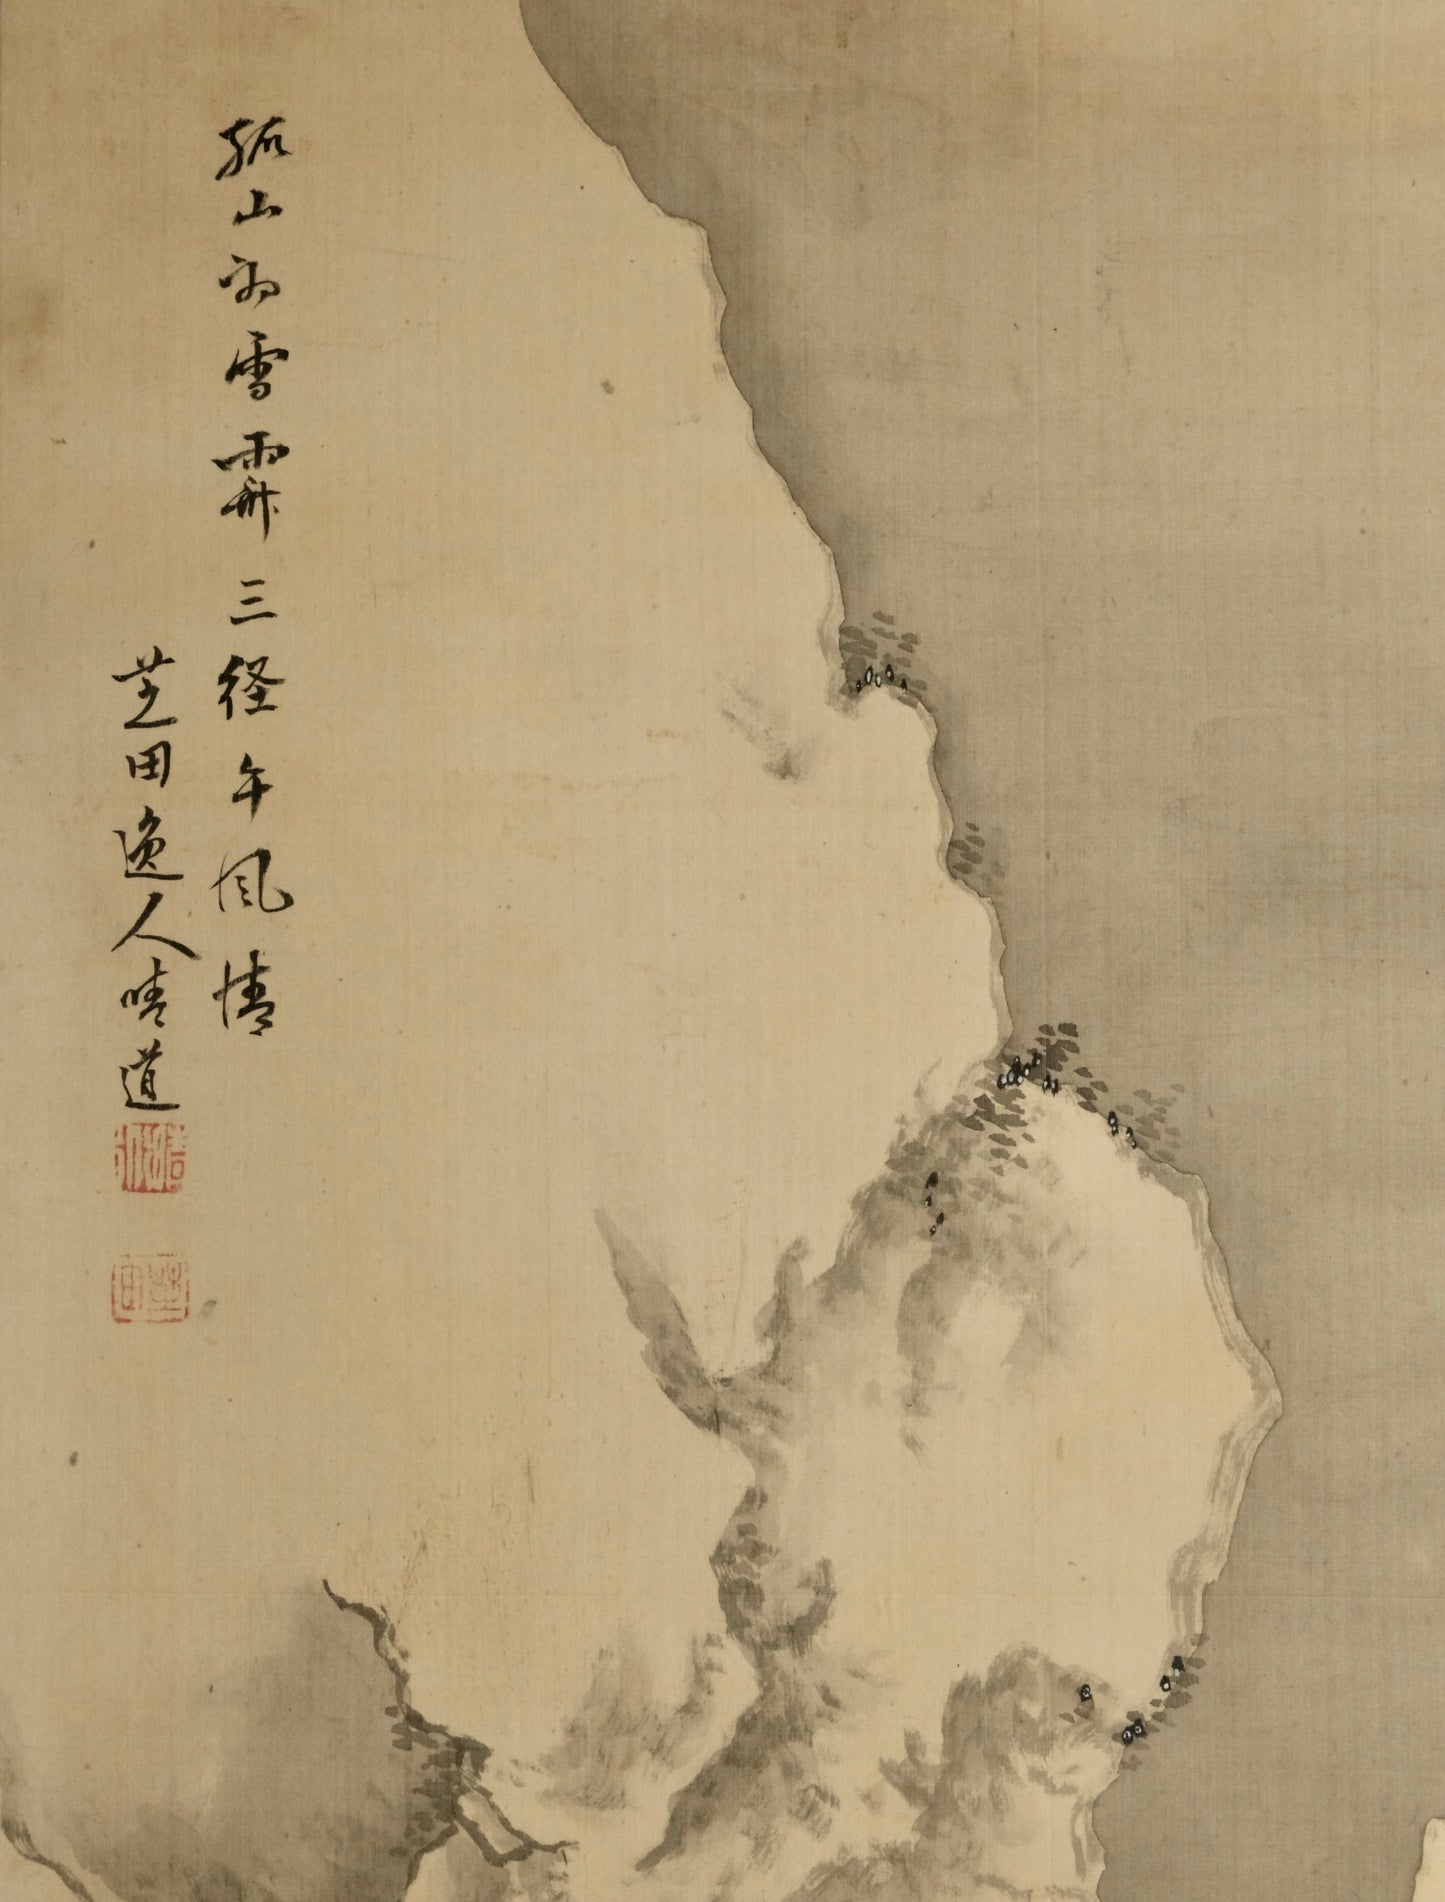 孤山初雪霽三径午風情
芝田逸人晴道